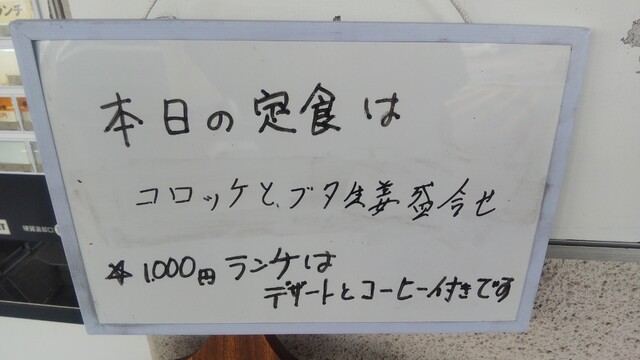 ランチ
本日の定食は
コロッケと、ブタ生姜盛合せ
☆1.000円ランチは
デザートとコーヒー付きです
硬貨返却口